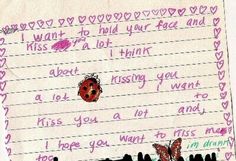 I want to hold your face and
kiss a lot
I think
about kissing you
a lot I want
to
kiss you a lot and,
I hope you want to kiss me
too im drunk